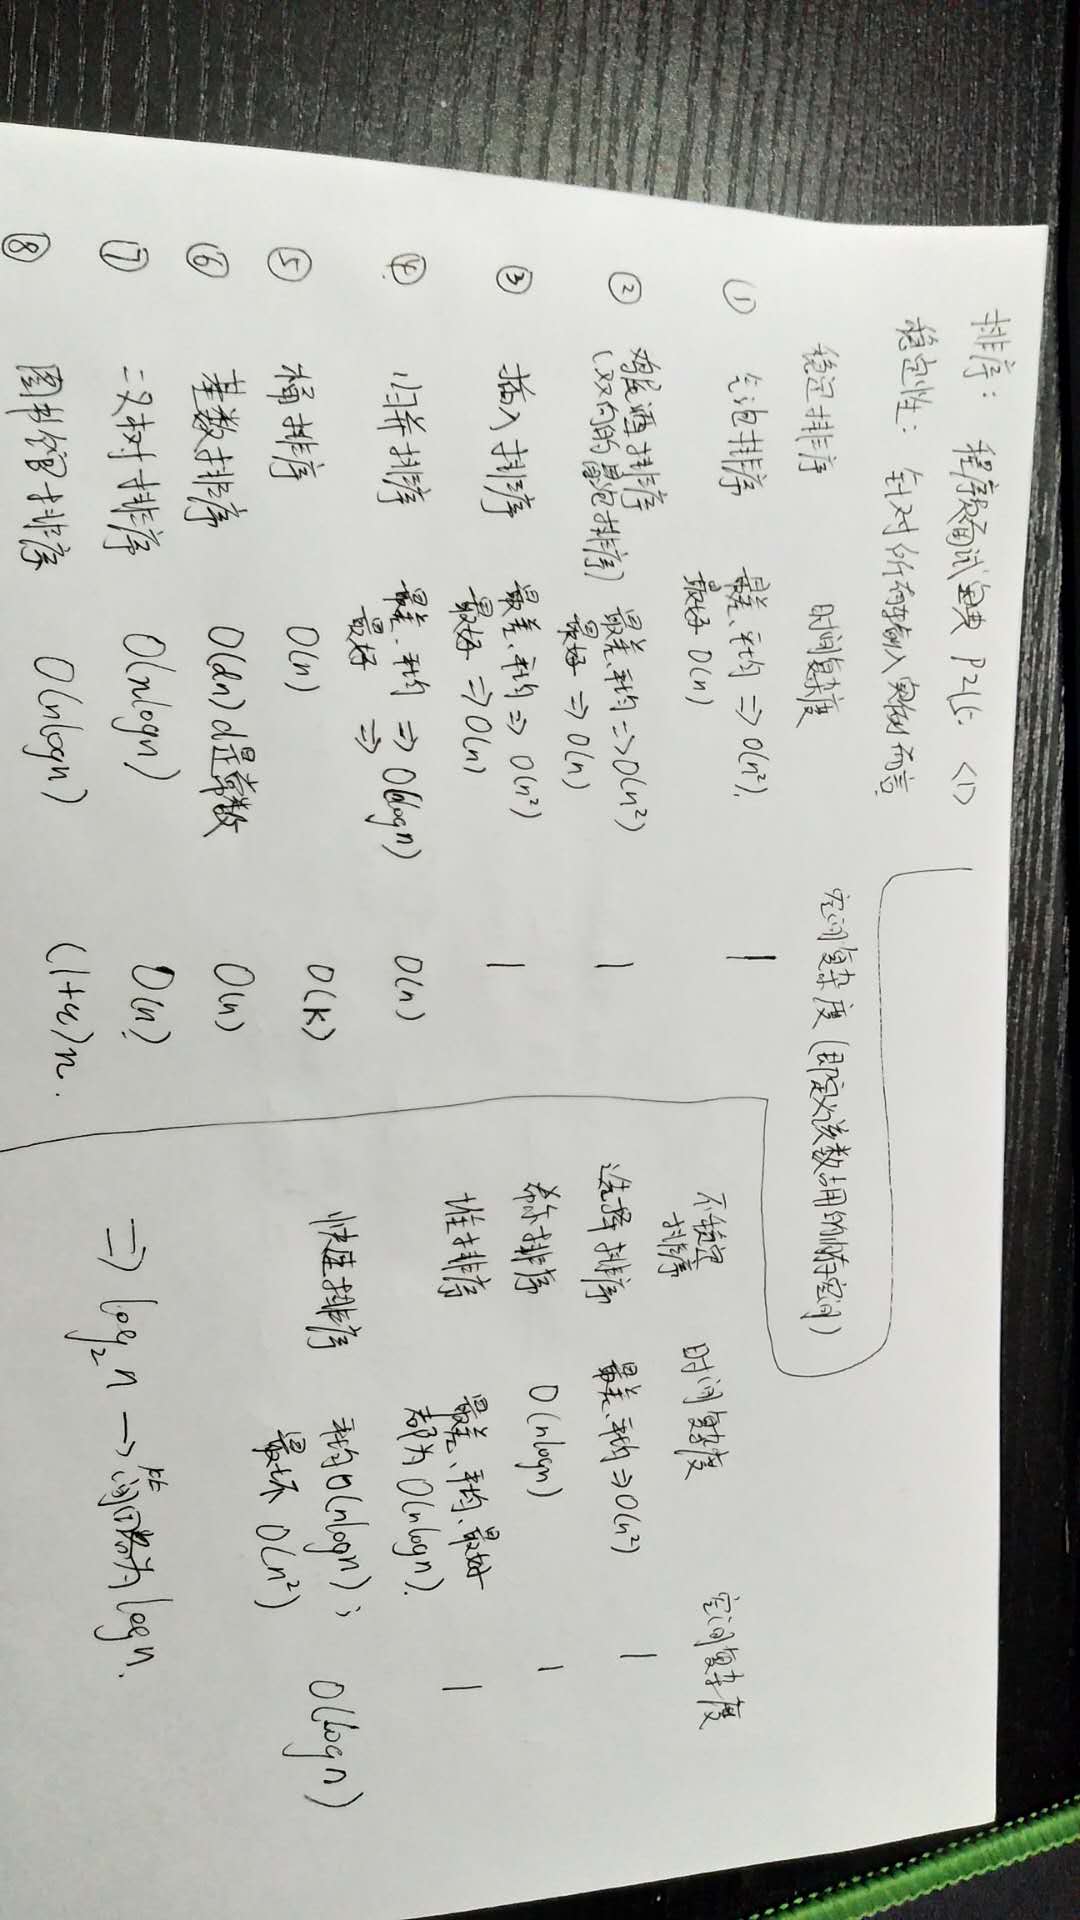 排序: 程序员面试宝典 P215. <1>
稳定性: 针对所有输入实例而言.
稳定排序 时间复杂度 空间复杂度(即定义该数占用的内存空间)
① 气泡排序 最差、平均 => O(n²). 1
最好 O(n)
② 鸡尾酒排序
(双向的冒泡排序) 最差、平均 => O(n²) 1
最好 => O(n)
③ 插入排序 最差、平均 => O(n²) 1
最好 => O(n)
④ 归并排序 最差、平均 => O(nlogn) O(n)
最好 =>
⑤ 桶排序 O(n) O(k)
⑥ 基数排序 O(dn) d是常数 O(n)
⑦ 二叉树排序 O(nlogn) O(n)
⑧ 图书馆排序 O(nlogn) (1+ε)n.
不稳定
排序 时间复杂度 空间复杂度
选择排序 最差、平均 => O(n²) 1
希尔排序 O(nlogn) 1
堆排序 最差、平均、最好 1
都为 O(nlogn).
快速排序 平均O(nlogn); O(logn)
最坏 O(n²)
=> log₂n → 简略为 logn.